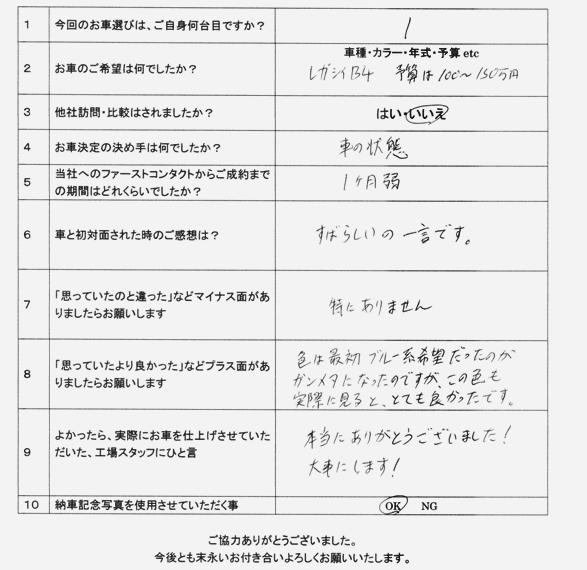 1 今回のお車選びは、ご自身何台目ですか? 1
車種・カラー・年式・予算 etc
2 お車のご希望は何でしたか? レガシィB4 予算は100〜150万円
3 他社訪問・比較はされましたか? はい・いいえ
4 お車決定の決め手は何でしたか? 車の状態
5 当社へのファーストコンタクトからご成約まで
の期間はどれくらいでしたか? 1ヶ月弱
6 車と初対面された時のご感想は? すばらしいの一言です。
7 「思っていたのと違った」などマイナス面があ
りましたらお願いします 特にありません
8 「思っていたより良かった」などプラス面があ
りましたらお願いします
色は最初ブルー系希望だったのが
ガンメタになったのですが、この色も
実際に見ると、とても良かったです。
9 よかったら、実際にお車を仕上げさせていた
だいた、工場スタッフにひと言
本当にありがとうございました!
大事にします!
10 納車記念写真を使用させていただく事 OK NG
ご協力ありがとうございました。
今後とも末永いお付き合いよろしくお願いいたします。